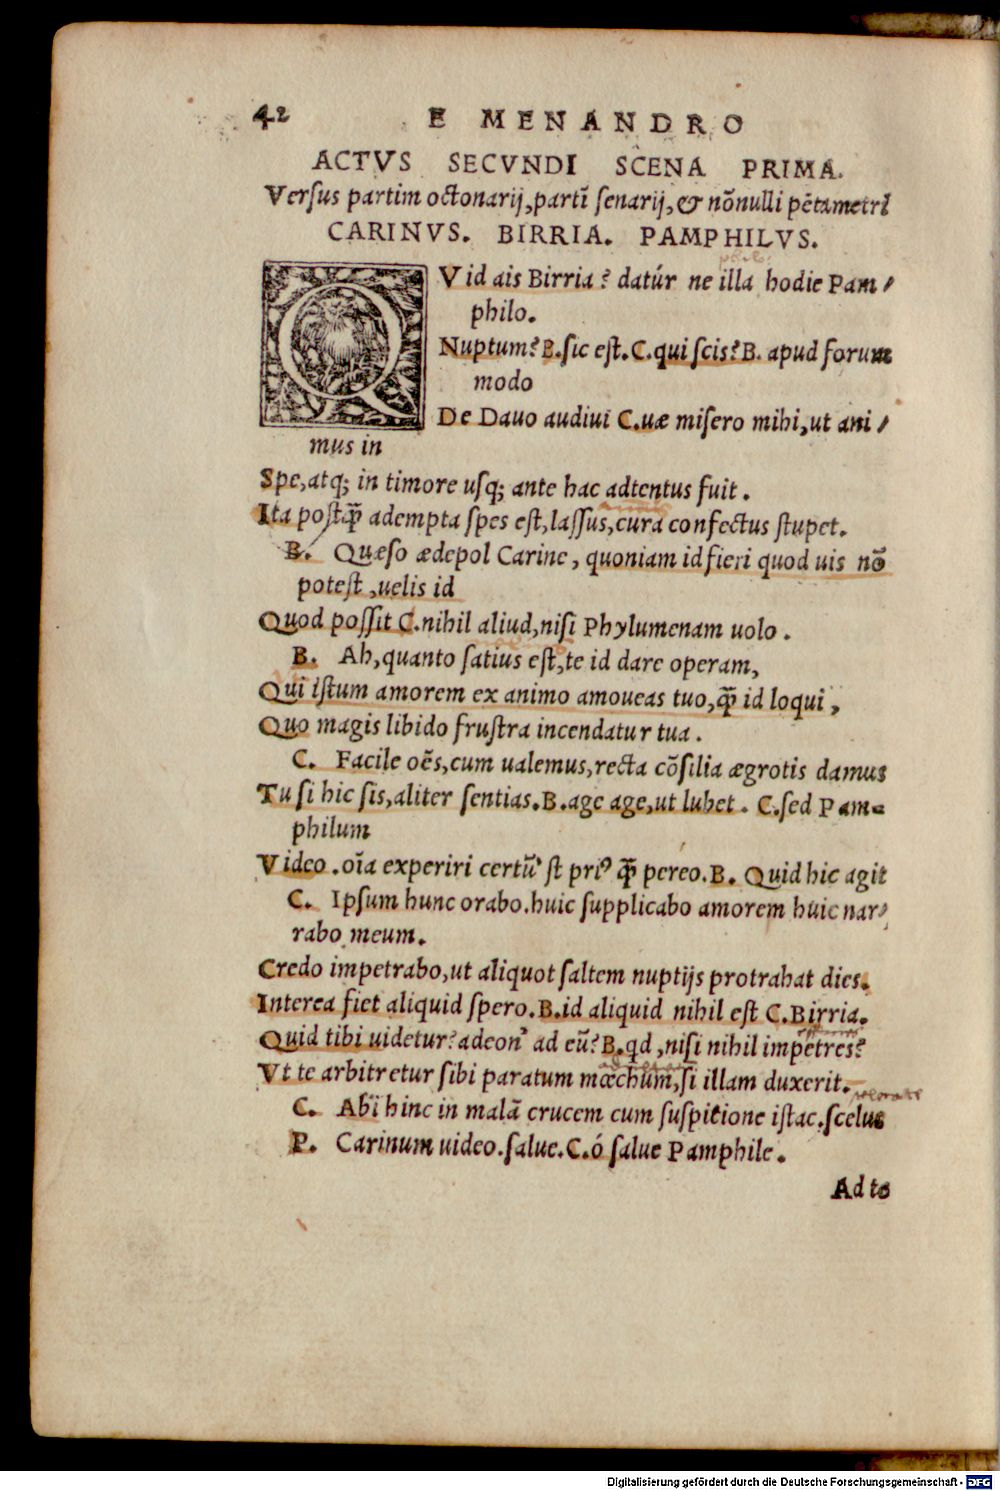 42 E MENANDRO
ACTVS SECVNDI SCENA PRIMA.
Versus partim octonarij, partĩ senarij, & nõnulli pẽtametri
CARINVS. BIRRIA. PAMPHILVS.
QVid ais Birria? datúr ne illa hodie Pam-
philo.
Nuptum? B. sic est. C. qui scis? B. apud forum
modo
De Dauo audiui C. uæ misero mihi, ut ani-
mus in
Spe, atq; in timore usq; ante hac adtentus fuit.
Ita postq̃ adempta spes est, lassus, cura confectus stupet.
B. Quæso ædepol Carine, quoniam id fieri quod uis nõ
potest, uelis id
Quod possit C. nihil aliud, nisi Phylumenam uolo.
B. Ah, quanto satius est, te id dare operam,
Qui istum amorem ex animo amoueas tuo, q̃ id loqui,
Quo magis libido frustra incendatur tua.
C. Facile oẽs, cum ualemus, recta cõsilia ægrotis damus
Tu si hic sis, aliter sentias. B. age age, ut lubet. C. sed Pam-
philum
Video. oĩa experiri certũ' st pri⁹ q̃ pereo. B. Quid hic agit
C. Ipsum hunc orabo. huic supplicabo amorem huic nar-
rabo meum.
Credo impetrabo, ut aliquot saltem nuptijs protrahat dies.
Interea fiet aliquid spero. B. id aliquid nihil est C. Birria.
Quid tibi uidetur? adeon' ad eũ? B. qd, nisi nihil impetres?
Vt te arbitretur sibi paratum mœchum, si illam duxerit.
C. Abi hinc in malã crucem cum suspitione istac. scelus
P. Carinum uideo. salue. C. ó salue Pamphile.
Ad te
Digitalisierung gefördert durch die Deutsche Forschungsgemeinschaft - DFG